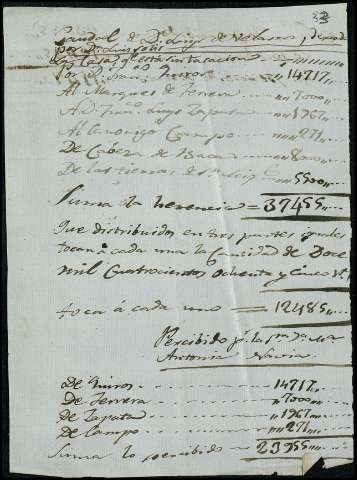 33
Caudal de D. Diego de Velasco, y
por
las casas
Por D. Juan Quiros 14717
Al Marques de Herrera 7000
A D. Fran.co Diego Zapata 1967
Al Canonigo Campo 271
De Cabeza de Baca 8000
De las tierras de 5500
Suma la herencia = 37455
Que distribuidos en tres partes iguales
tocan á cada una la Cantidad de Doce
mil Cuatrocientos Ochenta y Cinco
toca á cada uno = 12485
Percibido p.r la
Antonia
De Quiros 14717
De Herrera 7000
De Zapata 1967
De Campo 271
Suma lo percibido 23955